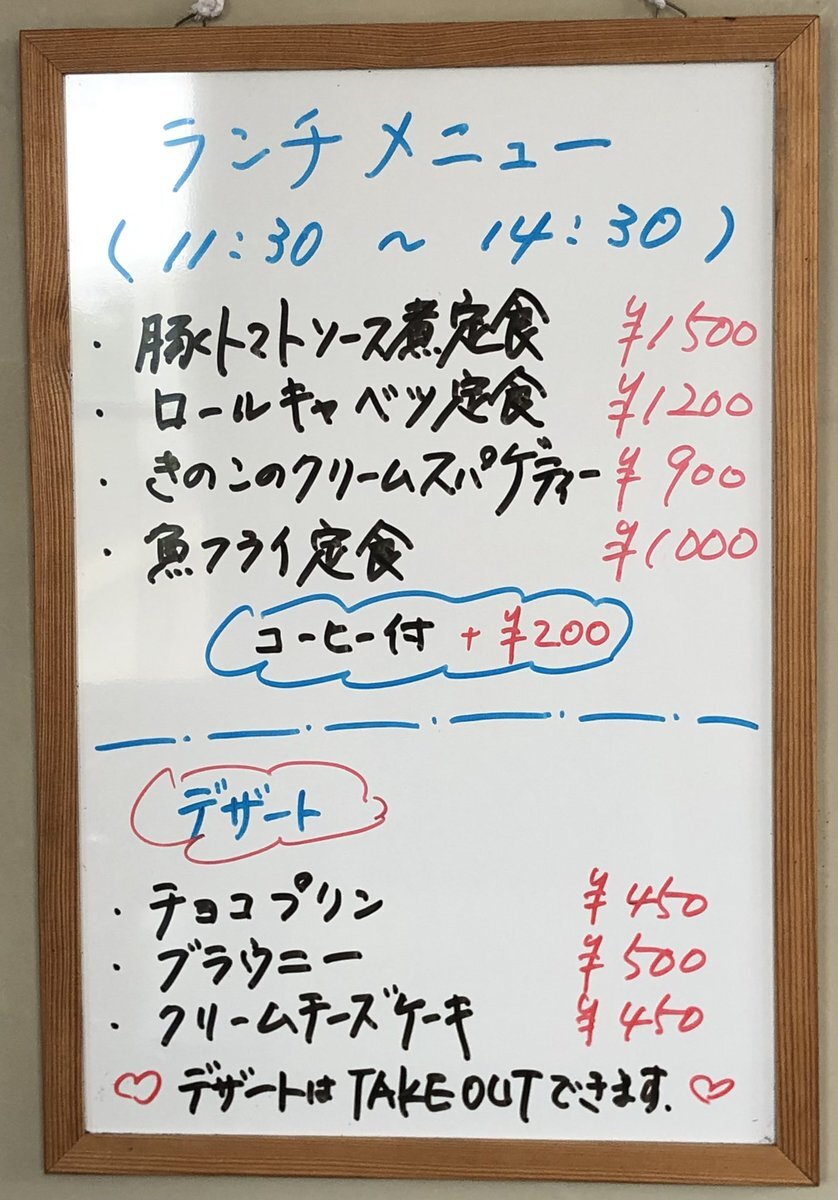 ランチメニュー
(11:30 ~ 14:30)
・豚トマトソース煮定食 ¥1500
・ロールキャベツ定食 ¥1200
・きのこのクリームスパゲティー ¥900
・魚フライ定食 ¥1000
コーヒー付 +¥200
デザート
・チョコプリン ¥450
・ブラウニー ¥500
・クリームチーズケーキ ¥450
♡デザートはTAKEOUTできます.♡